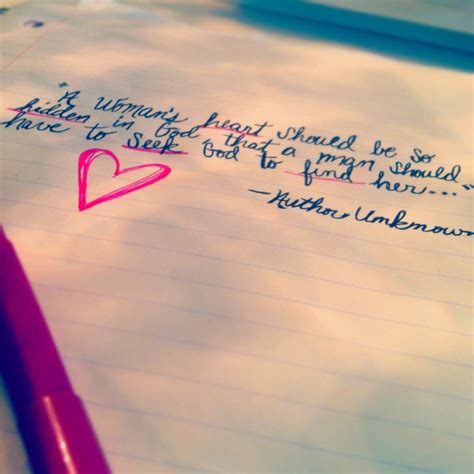 "A Woman's heart should be so
hidden in God that a man should
have to seek God to find her..."
—Author Unknown